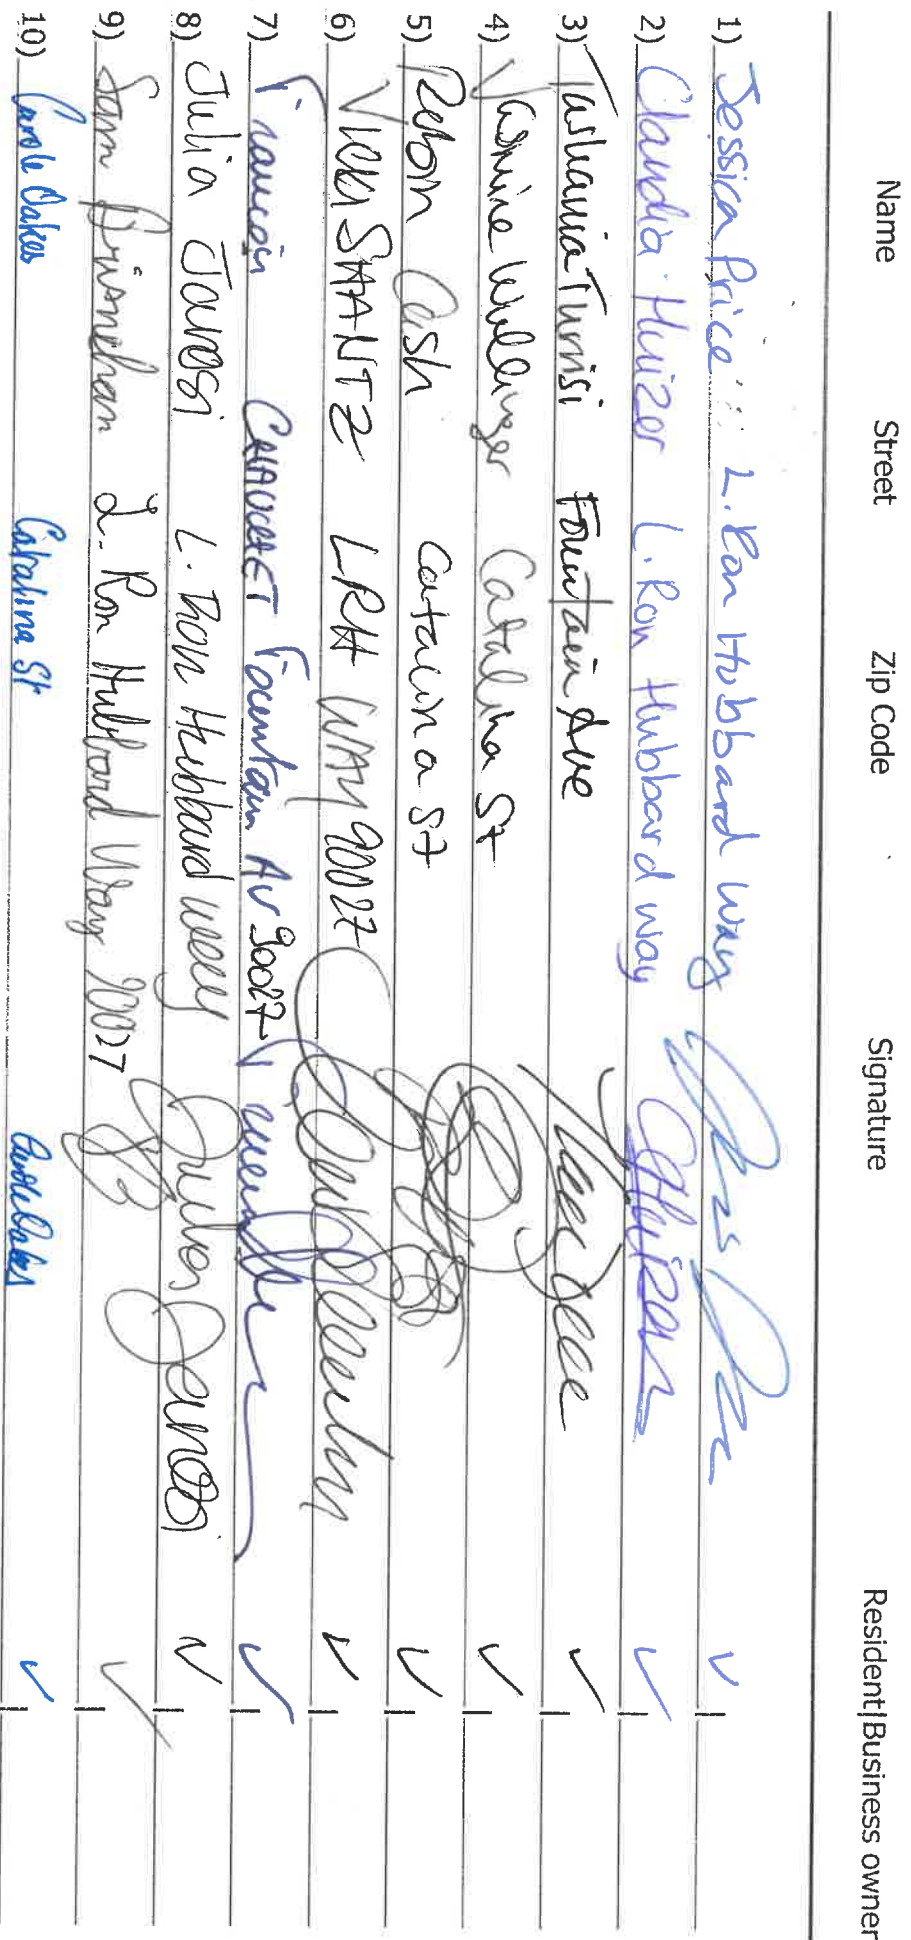 Name Street Zip Code Signature Resident|Business owner
1) Jessica Price L. Ron Hubbard Way ✓
2) Claudia Huizer L. Ron Hubbard way CHuizer ✓
3) Tashania Turrisi Fountain Ave ✓
4) Catalina St ✓
5) Robin Cash Catalina St ✓
6) Vicki SHANTZ LRH WAY 90027 ✓
7) Francois Fountain Av 90027 ✓
8) Julia Jarosi L. Ron Hubbard way Julia Jarosi ✓
9) Sam L. Ron Hubbard Way 90027 ✓
10) Carole Oakes Catalina St Carole Oakes ✓